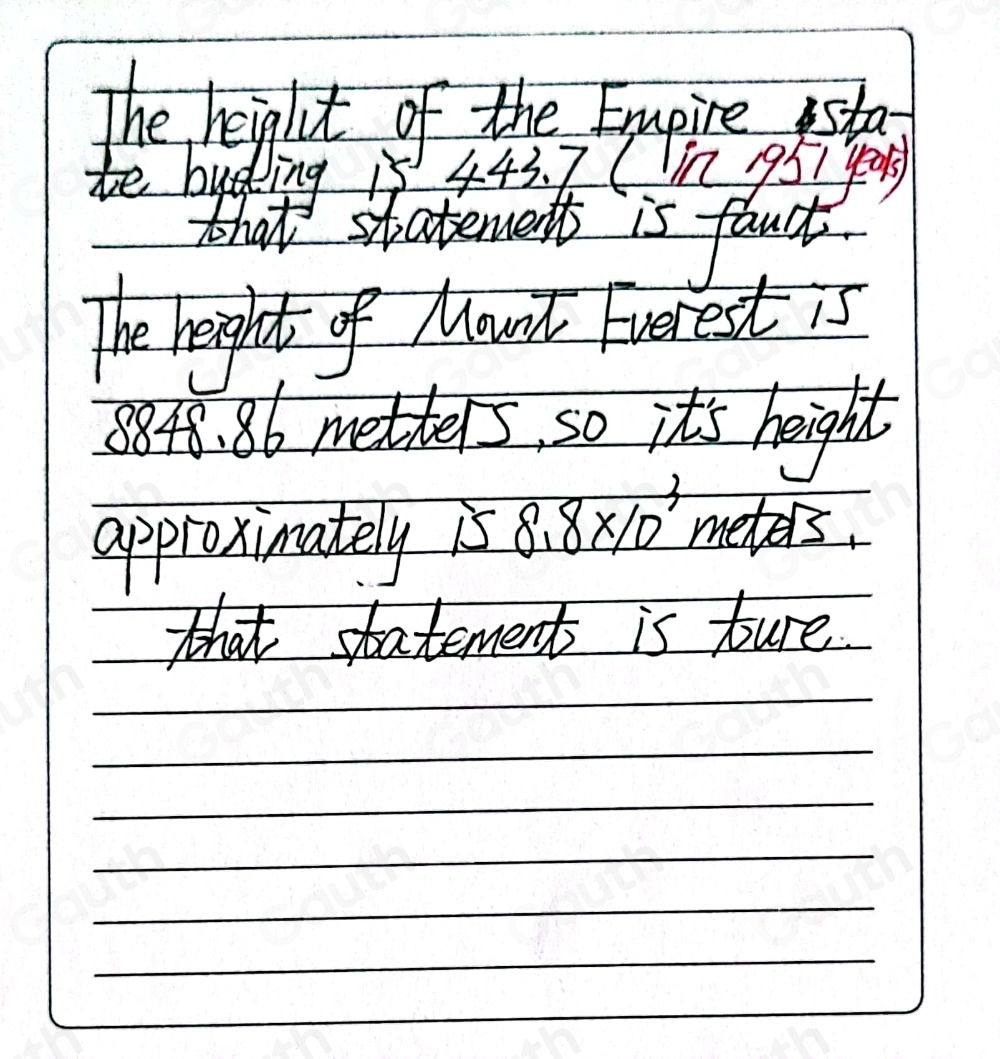 The heiglit of the Empire sta-
te buding is 443.7 ( in 1951 years)
that statement is fault.
The height of Mount Everest is
8848.86 metters, so it's height
approximately is 8.8×10³ meters,
that statement is ture.